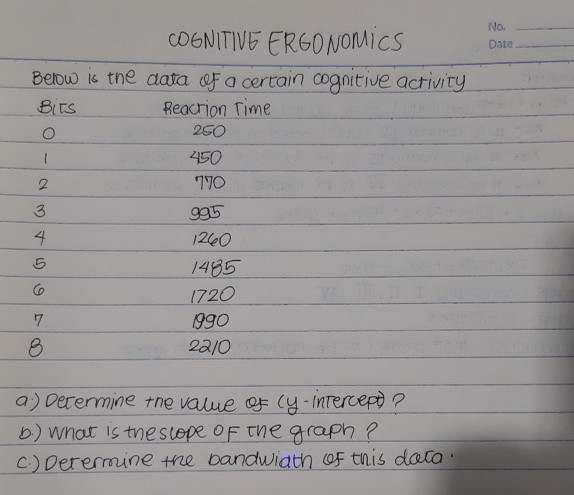 No.
COGNITIVE ERGONOMICS
Date
Below is the data of a certain cognitive activity
Bits Reaction Time
0 250
1 450
2 770
3 995
4 1260
5 1485
6 1720
7 1990
8 2210
a.) Determine the value of (y-intercept)?
b.) What is the slope of the graph?
c.) Determine the bandwidth of this data.